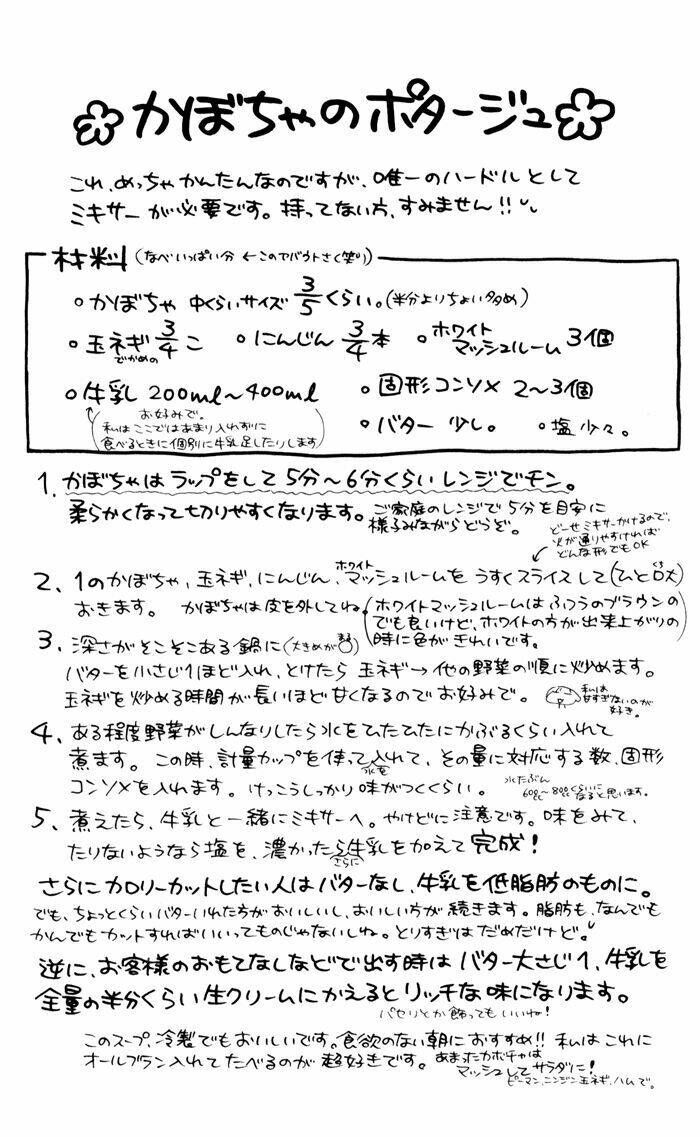 かぼちゃのポタージュ
これ、めっちゃかんたんなのですが、唯一のハードルとして
ミキサーが必要です。持ってない方、すみません!!
材料(なべいっぱい分 ←このアバウトさよ(笑))
かぼちゃ 中くらいサイズ 3/5くらい。(半分よりちょい多め)
玉ネギ 3/4こ
でかめの
にんじん 3/4本
ホワイト
マッシュルーム 3個
牛乳 200ml〜400ml
お好みで。
私はここではあまり入れずに
食べるときに個別に牛乳足したりします
固形コンソメ 2〜3個
バター 少し。
塩 少々。
1. かぼちゃはラップをして5分〜6分くらいレンジでチン。
柔らかくなって切りやすくなります。
ご家庭のレンジで5分を目安に
様子みながらどうぞ。
どーせミキサーかけるので、
火が通りやすければ
どんな形でもOK
2. 1のかぼちゃ、玉ネギ、にんじん、ホワイトマッシュルームをうすくスライスして(ひと口大)
おきます。 かぼちゃは皮を外してね。
ホワイトマッシュルームはふつうのブラウンの
でも良いけど、ホワイトの方が出来上がりの
時に色がきれいです。
3. 深さがそこそこある鍋に(大きめが
バターを小さじ1ほど入れ、とけたら 玉ネギ→他の野菜の順に炒めます。
玉ネギを炒める時間が長いほど甘くなるのでお好みで。
私は
甘すぎないのが
好き。
4. ある程度野菜がしんなりしたら水をひたひたにかぶるくらい入れて
煮ます。この時、計量カップを使って水を入れて、その量に対応する数、固形
コンソメを入れます。けっこうしっかり味がつくくらい。
水たぶん
600cc〜800ccくらいに
なると思います。
5. 煮えたら、牛乳と一緒にミキサーへ。やけどに注意です。味をみて、
たりないようなら塩を、濃かったらさらに牛乳を加えて完成!
さらにカロリーカットしたい人はバターなし、牛乳を低脂肪のものに。
でも、ちょっとくらいバターいれた方がおいしいし、おいしい方が続きます。脂肪も、なんでも
かんでもカットすればいいってものじゃないしね。とりすぎはだめだけど。
逆に、お客様のおもてなしなどで出す時はバター大さじ1、牛乳を
全量の半分くらい生クリームにかえるとリッチな味になります。
パセリとか飾ってもいいね!
このスープ、冷製でもおいしいです。食欲のない朝におすすめ!! 私はこれに
オールブラン入れてたべるのが超好きです。
あまったカボチャは
マッシュしてサラダに!
ピーマン、ニンジン、玉ネギ、ハムで。